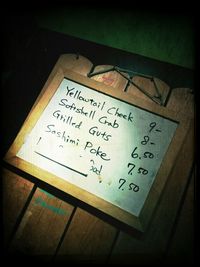 Yellowtail Cheek 9-
Softshell Crab 8-
Grilled Guts 6.50
Sashimi 7.50
Poke 7.50